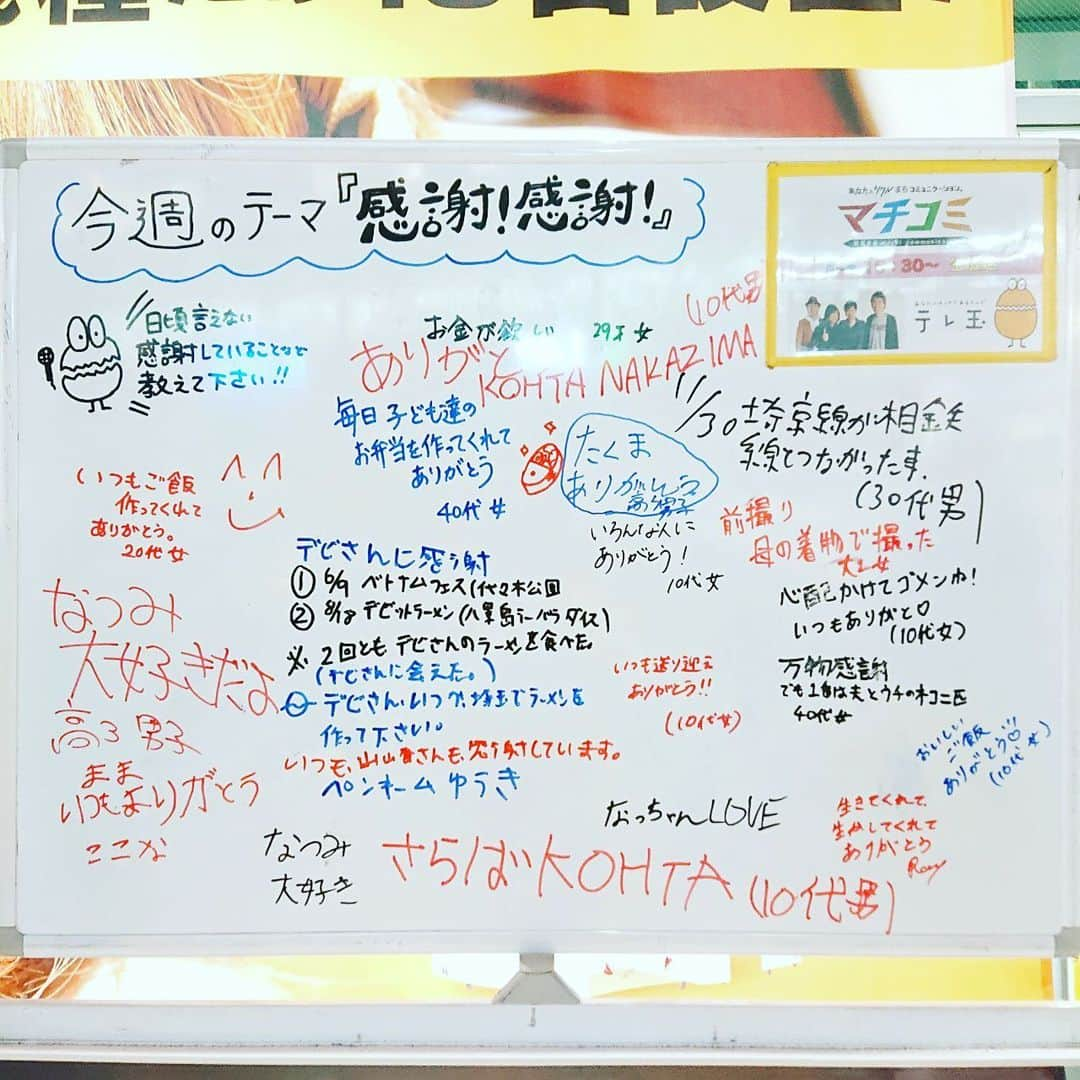 今週のテーマ『感謝!感謝!』
あなたとツクルまちコミュニケーション。
マチコミ
30〜
テレ玉
日頃言えない
感謝していることなど
教えて下さい!!
お金が欲しい 29才 女
(10代男
ありがと
KOHTA NAKAZIMA
毎日子ども達の
お弁当を作ってくれて
ありがとう
40代女
たくま
ありがとう
高3男子
11/30埼京線が相鉄
線とつながった事.
(30代男)
いつもご飯
作ってくれて
ありがとう。
20代女
いろんな人に
ありがとう!
10代女
前撮り
母の着物で撮った
大2女
デビさんに感謝
① 6/9 ベトナムフェス(代々木公園
② 8/18 デビットラーメン(八景島シーパラダイス)
※ 2回とも デビさんのラーメンを食べた。
(デビさんに会えた。)
デビさん、いつか、埼玉でラーメンを
作って下さい。
感謝しています。
ペンネーム ゆうき
心配かけてゴメンね!
いつもありがと♡
(10代女)
なつみ
大好きだよ
高3男子
いつも送り迎え
ありがとう!!
(10代女)
万物感謝
でも1番は夫とウチのネコ二匹
40代女
おいしい
ご飯
ありがとう♡
(10代女)
まま
いつもありがとう
ここな
なっちゃんLOVE
生きてくれて、
生かしてくれて
ありがとう
なつみ
大好き
さらばKOHTA (10代男)